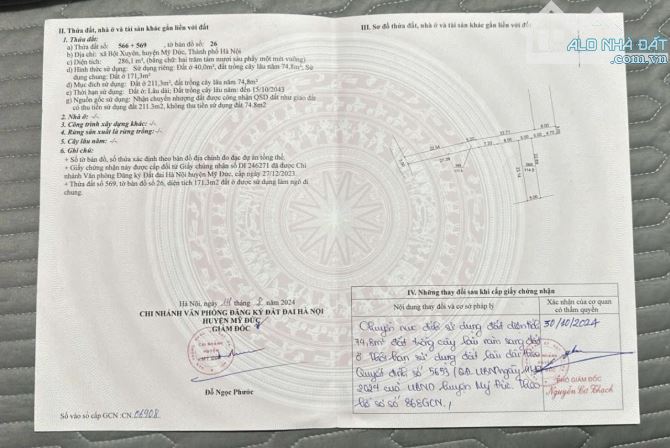 II. Thửa đất, nhà ở và tài sản khác gắn liền với đất
1. Thửa đất:
a) Thửa đất số: 566 + 569 , tờ bản đồ số: 26
b) Địa chỉ: xã Bột Xuyên, huyện Mỹ Đức, Thành phố Hà Nội
c) Diện tích: 286,1 m², (bằng chữ: hai trăm tám mươi sáu phẩy một mét vuông)
d) Hình thức sử dụng: Sử dụng riêng: Đất ở 40,0m², đất trồng cây lâu năm 74,8m²; Sử
dụng chung: Đất ở 171,3m²
đ) Mục đích sử dụng: Đất ở 211,3m², đất trồng cây lâu năm 74,8m²
e) Thời hạn sử dụng: Đất ở: Lâu dài; Đất trồng cây lâu năm: đến 15/10/2043
g) Nguồn gốc sử dụng: Nhận chuyển nhượng đất được công nhận QSD đất như giao đất
có thu tiền sử dụng đất 211.3m2, không thu tiền sử dụng đất 74.8m2
2. Nhà ở: -/-
3. Công trình xây dựng khác: -/-
4. Rừng sản xuất là rừng trồng: -/-
5. Cây lâu năm: -/-
6. Ghi chú:
+ Số tờ bản đồ, số thửa xác định theo bản đồ địa chính đo đạc dự án tổng thể.
+ Giấy chứng nhận này được cấp đổi từ Giấy chứng nhận số DI 246271 đã được Chi
nhánh Văn phòng Đăng ký Đất đai Hà Nội huyện Mỹ Đức, cấp ngày 27/12/2023.
+ Thửa đất số 569, tờ bản đồ số 26, diện tích 171,3m2 đất ở được sử dụng làm ngõ đi
chung.
Hà Nội, ngày 14 tháng 8 năm 2024
CHI NHÁNH VĂN PHÒNG ĐĂNG KÝ ĐẤT ĐAI HÀ NỘI
HUYỆN MỸ ĐỨC
GIÁM ĐỐC
Đỗ Ngọc Phước
Số vào sổ cấp GCN :CN.06908
III. Sơ đồ thửa đất, nhà ở và tài sản khác gắn liền với đất
ALO NHÀ ĐẤT
IV. Những thay đổi sau khi cấp giấy chứng nhận
Nội dung thay đổi và cơ sở pháp lý
Xác nhận của cơ quan
có thẩm quyền
Chuyển mục đích sử dụng đất diện tích
30/10/2024
74,8m² đất trồng cây lâu năm sang đất
ở Thời hạn sử dụng đất lâu dài theo
Quyết định số 5693/QĐ.UBND ngày
2024 của UBND huyện Mỹ Đức. Theo
hồ sơ số 868GCN./
GIÁM ĐỐC
Nguyễn Bá Thạch